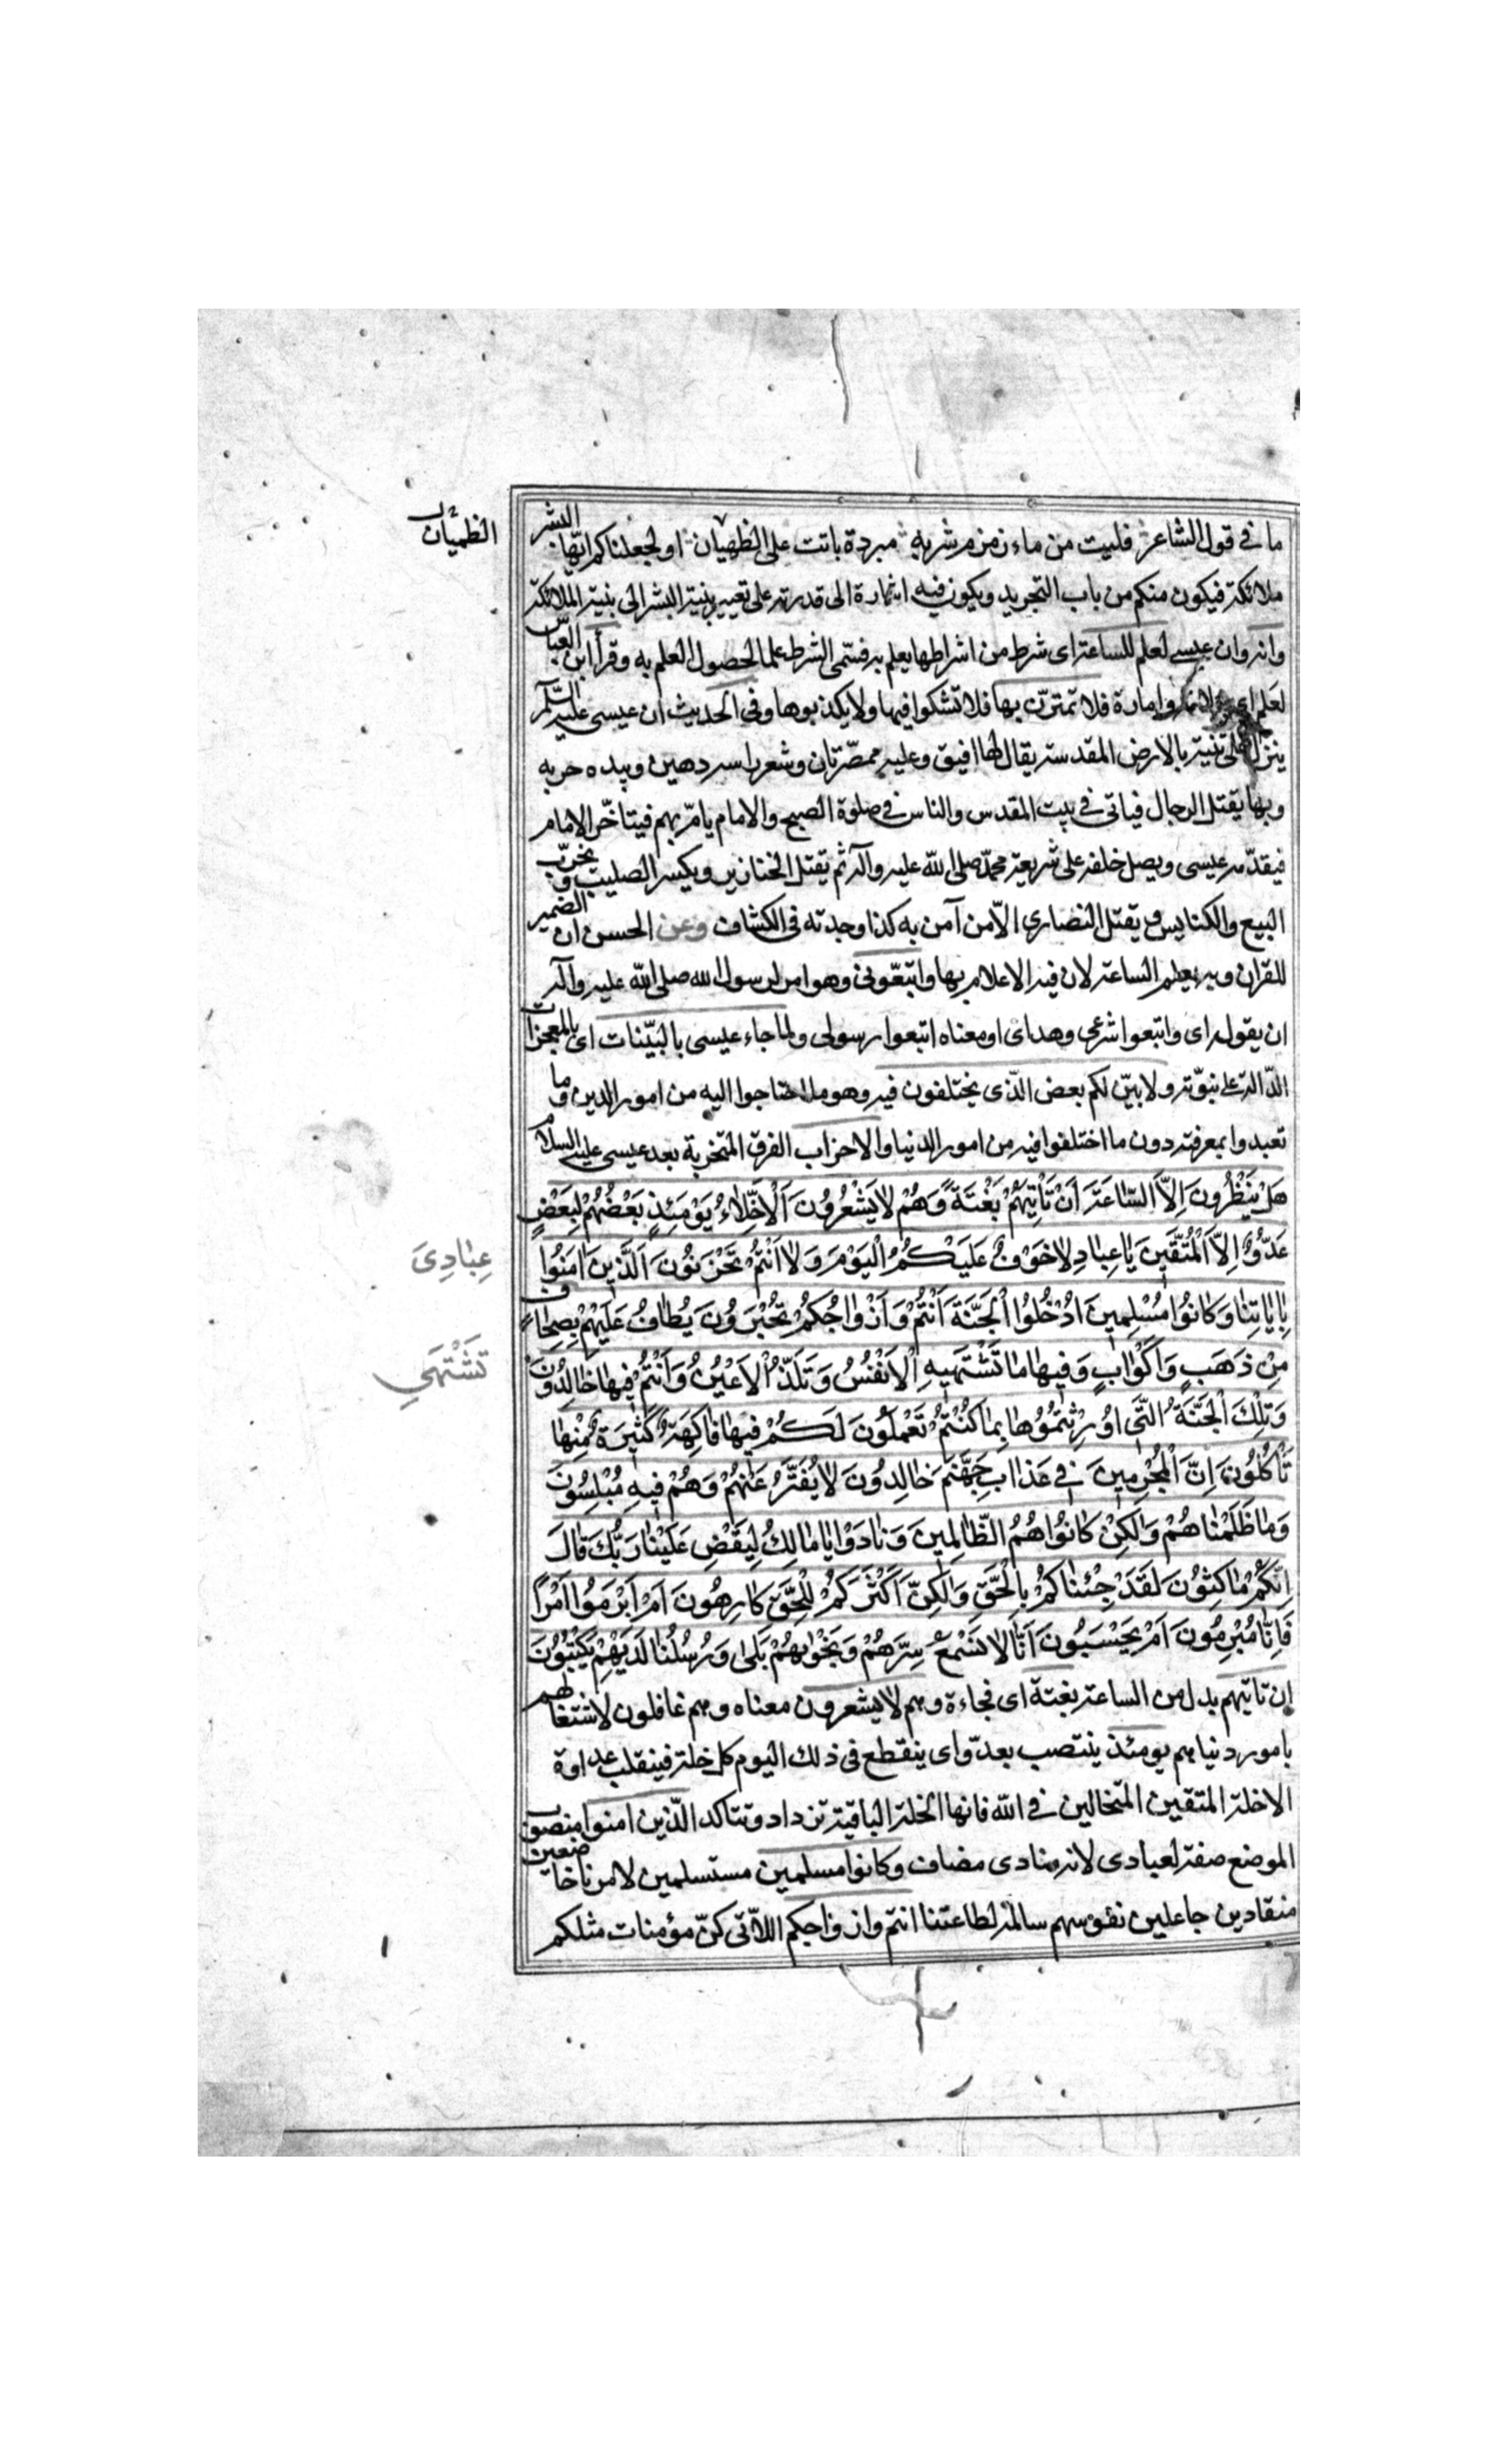 ما فى قول الشاعر فليت من ماء زمزم شربه مبردة باتت على الظهيان او لجعلناكم ايّها البشر
ملائكة فيكون منكم من باب التجريد ويكون فيه اشارة الى قدرته على تغيير بنية البشر الى بنية الملائكة
وانه وان عيسى لعلم للساعة اى شرط من اشراطها يعلم به فسمّى الشرط علما لحصول العلم به وقرأ ابن العبّاس
لعَلم اى وامارة فلا تمترنّ بها فلا تشكوا فيها ولا يكذبوها وفى الحديث ان عيسى عليه السّلم
ينزل على ثنية بالارض المقدسة يقال لها افيق وعليه ممصّرتان وشعر راسه دهين وبيده حربه
وبها يقتل الدجال فياتى فى بيت المقدس والناس فى صلوة الصبح والامام يامّ بهم فيتاخّر الامام
فيقدّمه عيسى ويصل خلفه على شريعة محمّد صلى اللّه عليه وآله ثم يقتل الخنازير ويكسر الصليب و يخرّب
البيع والكنايس ويقتل النصارى الّا من آمن به كذا وجدته فى الكشاف وعن الحسن ان الضمير
للقران وبه يعلم الساعة لان فيه الاعلام بها واتبعونى وهو امر لرسول الله صلى اللّه عليه وآله
ان يقوله اى واتبعوا شرعى وهداى او معناه اتبعوا رسولى ولما جاء عيسى بالبيّنات اى بالمعجزات
الدّالة على نبوّته ولابيّن لكم بعض الّذى يختلفون فيه وهو ما احتاجوا اليه من امور الدين وما
تعبدوا بمعرفته دون ما اختلفوا فيه من امور الدنيا والاحزاب الفرق المتحزبة بعد عيسى عليه السلام
هَلْ يَنْظُرُونَ اِلاَّ السّاعَةَ اَنْ تَاْتِيَهُمْ بَغْتَةً وَهُمْ لايَشْعُرُونَ اَلْاَخِلّاءُ يَوْمَئِذٍ بَعْضُهُمْ لِبَعْضٍ
عَدُوٌّ اِلاَّ الْمُتَّقينَ يا عِبادِ لاخَوْفٌ عَلَيْكُمُ الْيَوْمَ وَلا اَنْتُمْ تَحْزَنُونَ اَلَّذينَ امَنُوا
بِاياتِنا وَكانُوا مُسْلِمينَ ادْخُلُوا الْجَنَّةَ اَنْتُمْ وَاَزْواجُكُمْ تُحْبَرُونَ يُطافُ عَلَيْهِمْ بِصِحافٍ
مِنْ ذَهَبٍ وَاَكْوابٍ وَفيها ما تَشْتَهيهِ الْاَنْفُسُ وَتَلَذُّ الْاَعْيُنُ وَاَنْتُمْ فيها خالِدُونَ
وَتِلْكَ الْجَنَّةُ الَّتى اُورِثْتُمُوها بِما كُنْتُمْ تَعْمَلُونَ لَكُمْ فيها فاكِهَةٌ كَثيرَةٌ مِنْها
تَاْكُلُونَ اِنَّ الْمُجْرِمينَ فى عَذابِ جَهَنَّمَ خالِدُونَ لا يُفَتَّرُ عَنْهُمْ وَهُمْ فيهِ مُبْلِسُونَ
وَما ظَلَمْناهُمْ وَلكِنْ كانُوا هُمُ الظّالِمينَ وَنادَوْا يا مالِكُ لِيَقْضِ عَلَيْنا رَبُّكَ قالَ
اِنَّكُمْ ماكِثُونَ لَقَدْ جِئْناكُمْ بِالْحَقِّ وَلكِنَّ اَكْثَرَكُمْ لِلْحَقِّ كارِهُونَ اَمْ اَبْرَمُوا اَمْراً
فَاِنّا مُبْرِمُونَ اَمْ يَحْسَبُونَ اَنّا لا نَسْمَعُ سِرَّهُمْ وَنَجْويهُمْ بَلى وَرُسُلُنا لَدَيْهِمْ يَكْتُبُونَ
ان تاتيهم بدل من الساعة بغتة اى فجاءة وهم لا يشعرون معناه وهم غافلون لاشتغالهم
بامور دنياهم يومئذ ينتصب بعدوّ اى ينقطع فى ذلك اليوم كل خلة فينقلب عداوة
الا خلة المتقين المتخالين فى اللّه فانها الخلة الباقية تزداد وتتاكد الّذين امنوا منصوب
الموضع صفة لعبادى لانه منادى مضاف وكانوا مسلمين مستسلمين لامرنا خاضعين
منقادين جاعلين نفوسهم سالمة لطاعتنا انتم وازواجكم اللّاتى كنّ مؤمنات مثلكم
الظميان
عِبادِىَ
تَشْتَهِي